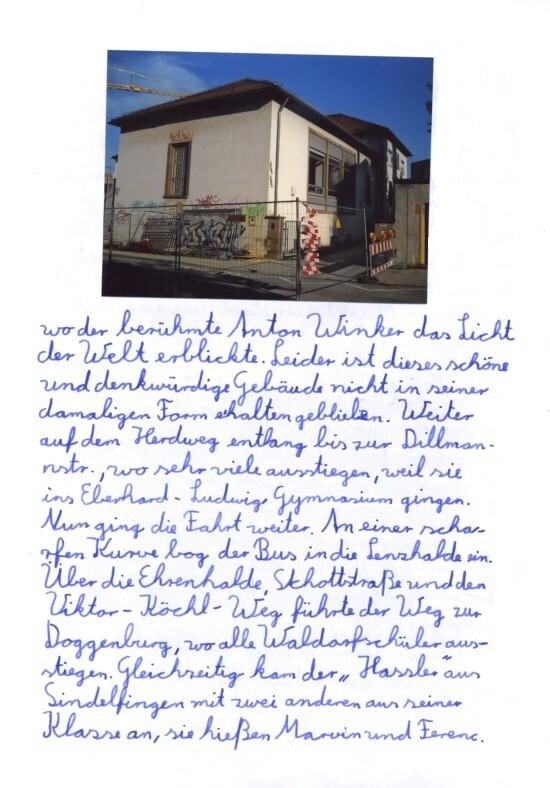 wo der berühmte Anton Winker das Licht
der Welt erblickte. Leider ist dieses schöne
und denkwürdige Gebäude nicht in seiner
damaligen Form erhalten geblieben. Weiter
auf dem Herdweg entlang bis zur Dillman-
nstr., wo sehr viele ausstiegen, weil sie
ins Eberhard-Ludwigs Gymnasium gingen.
Nun ging die Fahrt weiter. An einer schar-
fen Kurve bog der Bus in die Lenzhalde ein.
Über die Ehrenhalde, Schottstraße und den
Viktor-Köchl-Weg führte der Weg zur
Doggenburg, wo alle Waldorfschüler aus-
stiegen. Gleichzeitig kam der „Hassler" aus
Sindelfingen mit zwei anderen aus seiner
Klasse an, sie hießen Marvin und Ferenc.